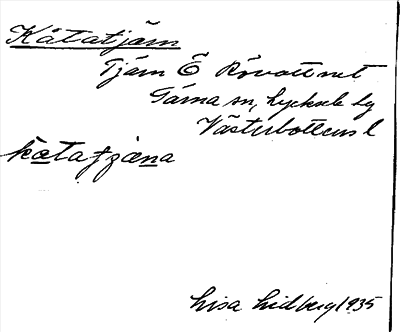 Kåtatjärn
Tjärn Ö Rövattnet
Tärna sn, Lycksele lg
Västerbottens l
kåtatjæna
Lisa Lidberg 1935